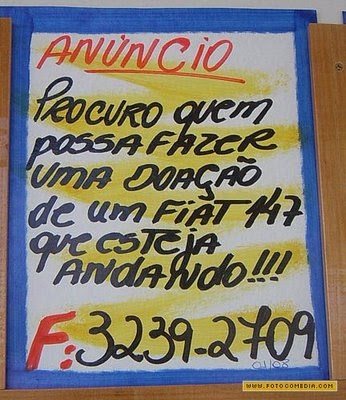 ANÚNCIO
PROCURO quem
possa FAZER
UMA DOAÇÃO
de um FIAT 147
que esteja
ANDANDO!!!
F: 3239-2709
01/08
WWW.FOTOCOMEDIA.COM